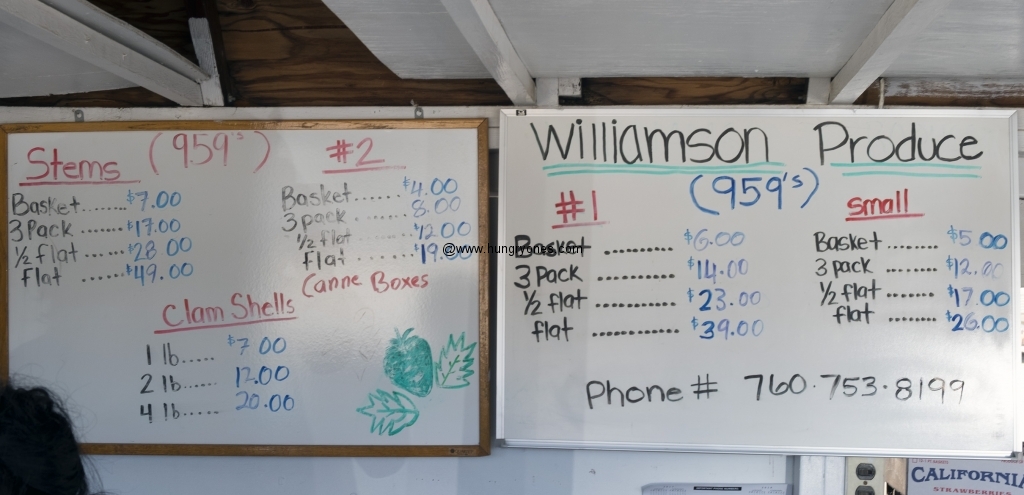 Stems (959's) #2
Basket........$7.00
3 Pack.......$17.00
1/2 flat ......$28 00
flat ..... $49.00
Basket......$4.00
3 pack ..... 8.00
1/2 flat ...... 12.00
flat ....... $19.00
Canne Boxes
Clam Shells
1 lb...... $7 00
2 lb...... 12.00
4 lb...... 20.00
@www.hungryones.com
Williamson Produce
(959's)
#1
Basket .......... $6.00
3 Pack ............ $14.00
1/2 flat ............ $23.00
flat ............ $39.00
small
Basket ........ $5 00
3 pack ........ $12.00
1/2 flat ........ $17.00
flat ........ $26.00
Phone # 760.753.8199
CALIFORNIA
STRAWBERRIES